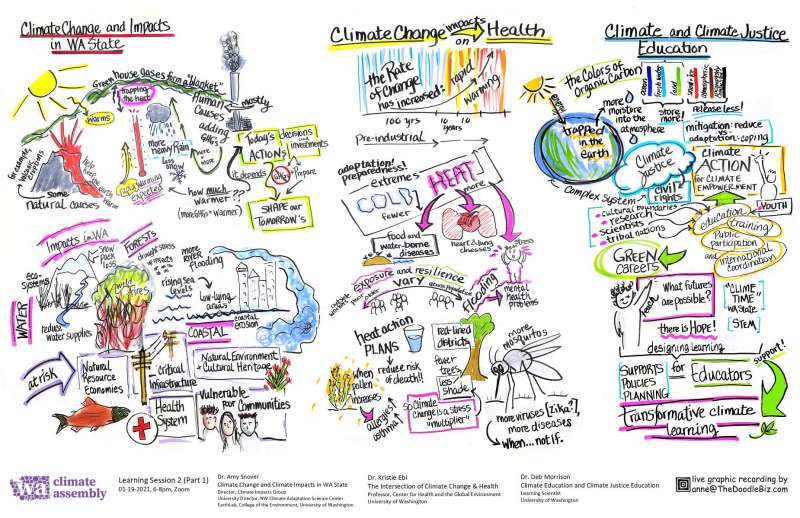 Climate Change and Impacts
in WA State
Greenhouse gases form a "blanket"
trapping
the heat
warms
Human
Causes
mostly
adding
GHG's
more
heavy Rain
less
snow
for example,
Volcanic
eruptions
help
keep
Earth
warm
some
natural causes
rapid warming
expected
how much
warmer??
(more GHGs = Warmer)
Today's
ACTIONS
decisions
and
investments
it depends
GHGs
Prepare
SHAPE our
TOMORROW'S
Impacts in WA
FORESTS
snow
pack
loss
drought stress
insects
more
RIVER
Flooding
eco-
systems
rising sea
levels
Low-lying
areas
WATER
reduce
Water supplies
coastal
erosion
COASTAL
at risk
Natural
Resource
Economies
Critical
Infrastructure
Natural Environment
Cultural Heritage
Health
System
Vulnerable
Poor
Communities
Climate Change impacts on Health
the Rate
of Change
has increased:
rapid
warming
100 yrs
10
years
Pre-industrial
adaptation!
preparedness!
extremes
COLD
fewer
HEAT
more
food and
water-borne
diseases
heart & lung
diseases
stress
exposure and resilience
VARY
flooding
mental
health
problems
heat action
PLANS
reduce risk
of death!
red-lined
districts
fewer
trees
less
shade
when
pollen
increases
allergies
asthma
so Climate
Change is a stress
"multiplier"
more
mosquitos
more viruses [Zika?],
more diseases
when... not if.
Climate and Climate Justice
Education
the Colors of
Organic Carbon
ocean
fresh water
land
atmospheric
energy
trapped
in the
earth
more
moisture
into the
atmosphere
store
more!
release less!
mitigation: reduce
vs
adaptation: coping
Climate
Justice
civil
rights
Climate
ACTION
for CLIMATE
EMPOWERMENT
YOUTH
Complex System
cultural boundaries
research
scientists
tribal nations
education
training
Public
participation
and
international
coordination
GREEN
careers
teach
What futures
are possible?
there is HOPE!
"CLIME
TIME"
WA STATE
[STEM]
designing learning
support!
SUPPORTS
POLICIES
PLANNING
for
Educators
Transformative climate
learning
wa climate
assembly
Learning Session 2 (Part 1)
01-19-2021, 6-8pm, Zoom
Dr. Amy Snover
Climate Change and Climate Impacts in WA State
Director, Climate Impacts Group
University Director, NW Climate Adaptation Science Center
EarthLab, College of the Environment, University of Washington
Dr. Kristie Ebi
The Intersection of Climate Change & Health
Professor, Center for Health and the Global Environment
University of Washington
Dr. Deb Morrison
Climate Education and Climate Justice Education
Learning Scientist
University of Washington
live graphic recording by
anne@TheDoodleBiz.com